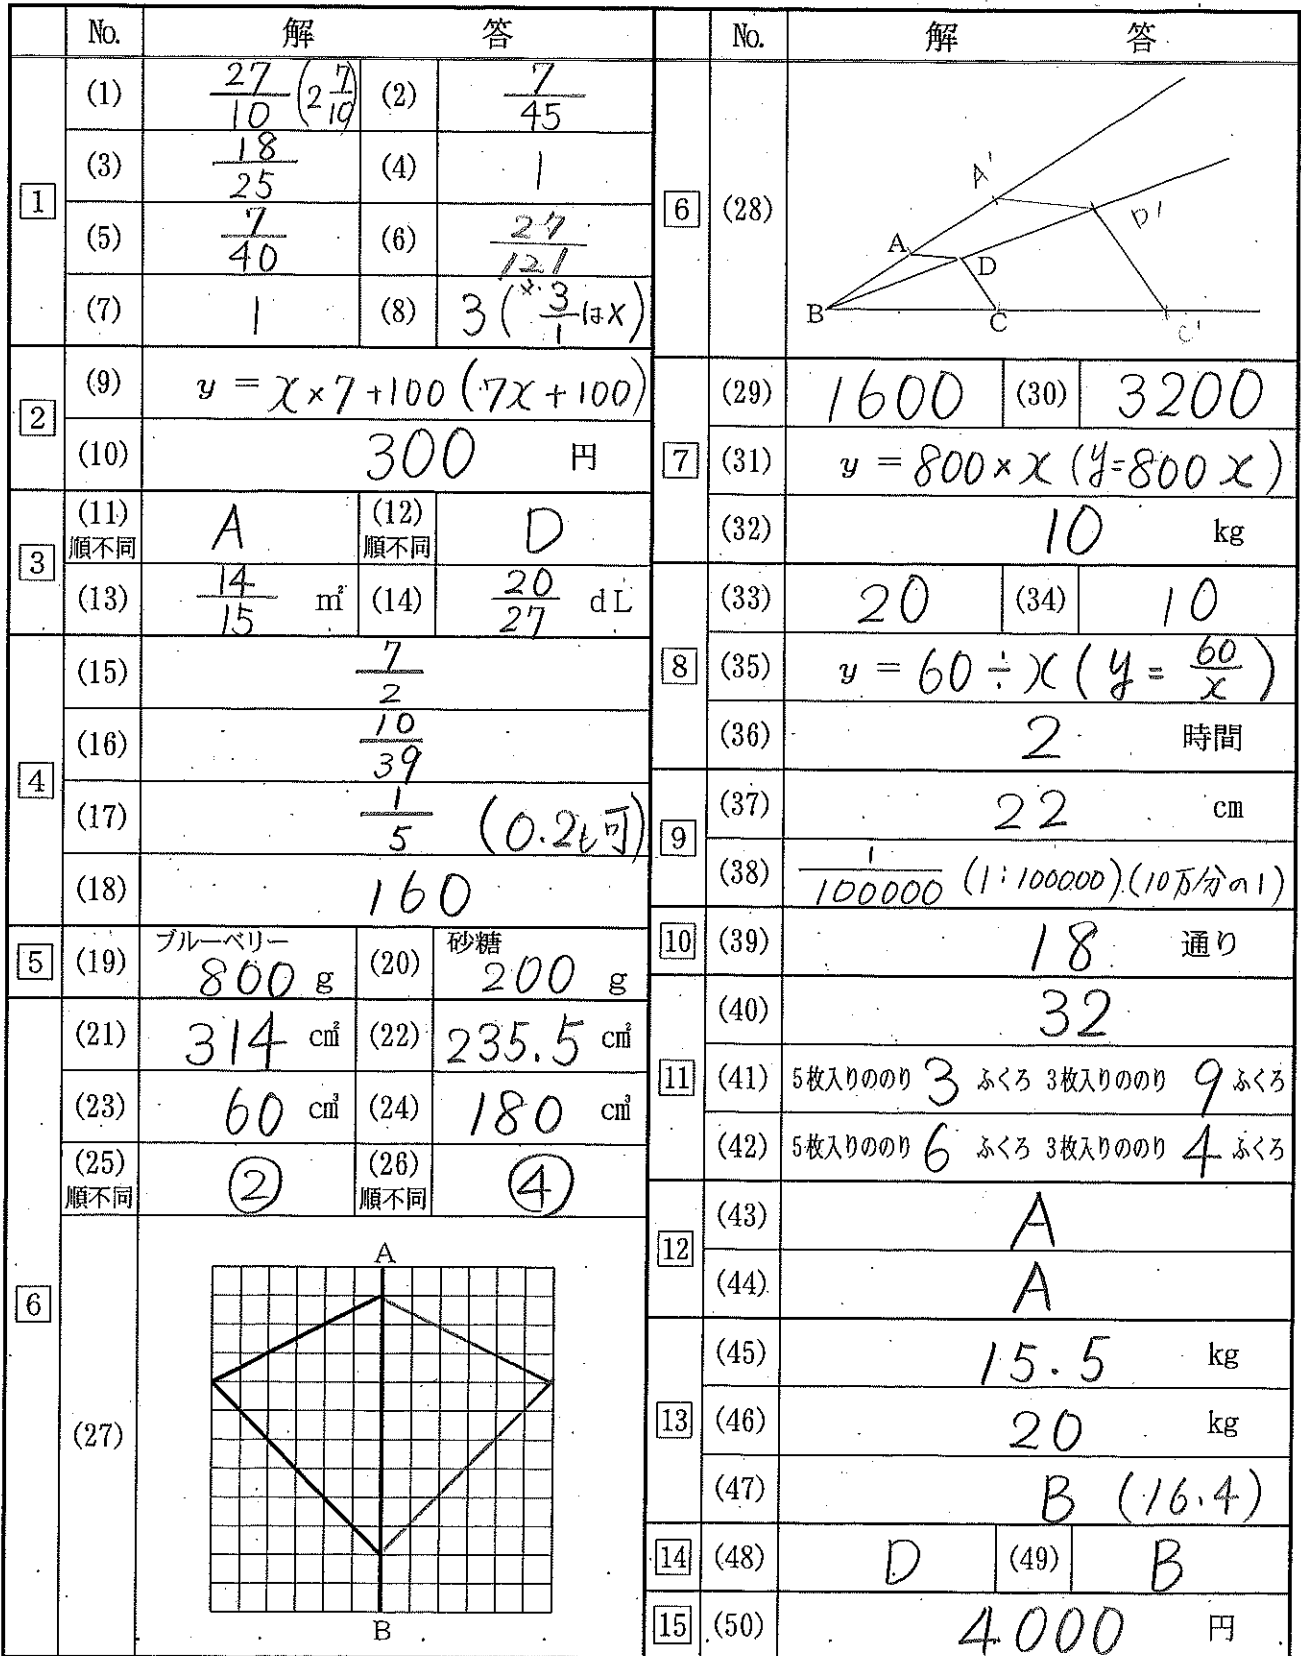 No. 解 答
1
(1) 27/10 (2 7/10) (2) 7/45
(3) 18/25 (4) 1
(5) 7/40 (6) 27/121
(7) 1 (8) 3 (※ 3/1 は×)
2
(9) y = x×7+100 (7x+100)
(10) 300 円
3
(11) 順不同 A (12) 順不同 D
(13) 14/15 ㎡ (14) 20/27 dL
4
(15) 7/2
(16) 10/39
(17) 1/5 (0.2も可)
(18) 160
5
(19) ブルーベリー 800 g (20) 砂糖 200 g
6
(21) 314 ㎠ (22) 235.5 ㎠
(23) 60 ㎤ (24) 180 ㎤
(25) 順不同 ② (26) 順不同 ④
(27)
A
B
No. 解 答
6
(28)
A'
D'
A
D
B
C
C'
7
(29) 1600 (30) 3200
(31) y = 800×x (y=800x)
(32) 10 kg
8
(33) 20 (34) 10
(35) y = 60÷x (y = 60/x)
(36) 2 時間
9
(37) 22 cm
(38) 1/100000 (1:100000).(10万分の1)
10
(39) 18 通り
11
(40) 32
(41) 5枚入りののり 3 ふくろ 3枚入りののり 9 ふくろ
(42) 5枚入りののり 6 ふくろ 3枚入りののり 4 ふくろ
12
(43) A
(44) A
13
(45) 15.5 kg
(46) 20 kg
(47) B (16.4)
14
(48) D (49) B
15
(50) 4000 円